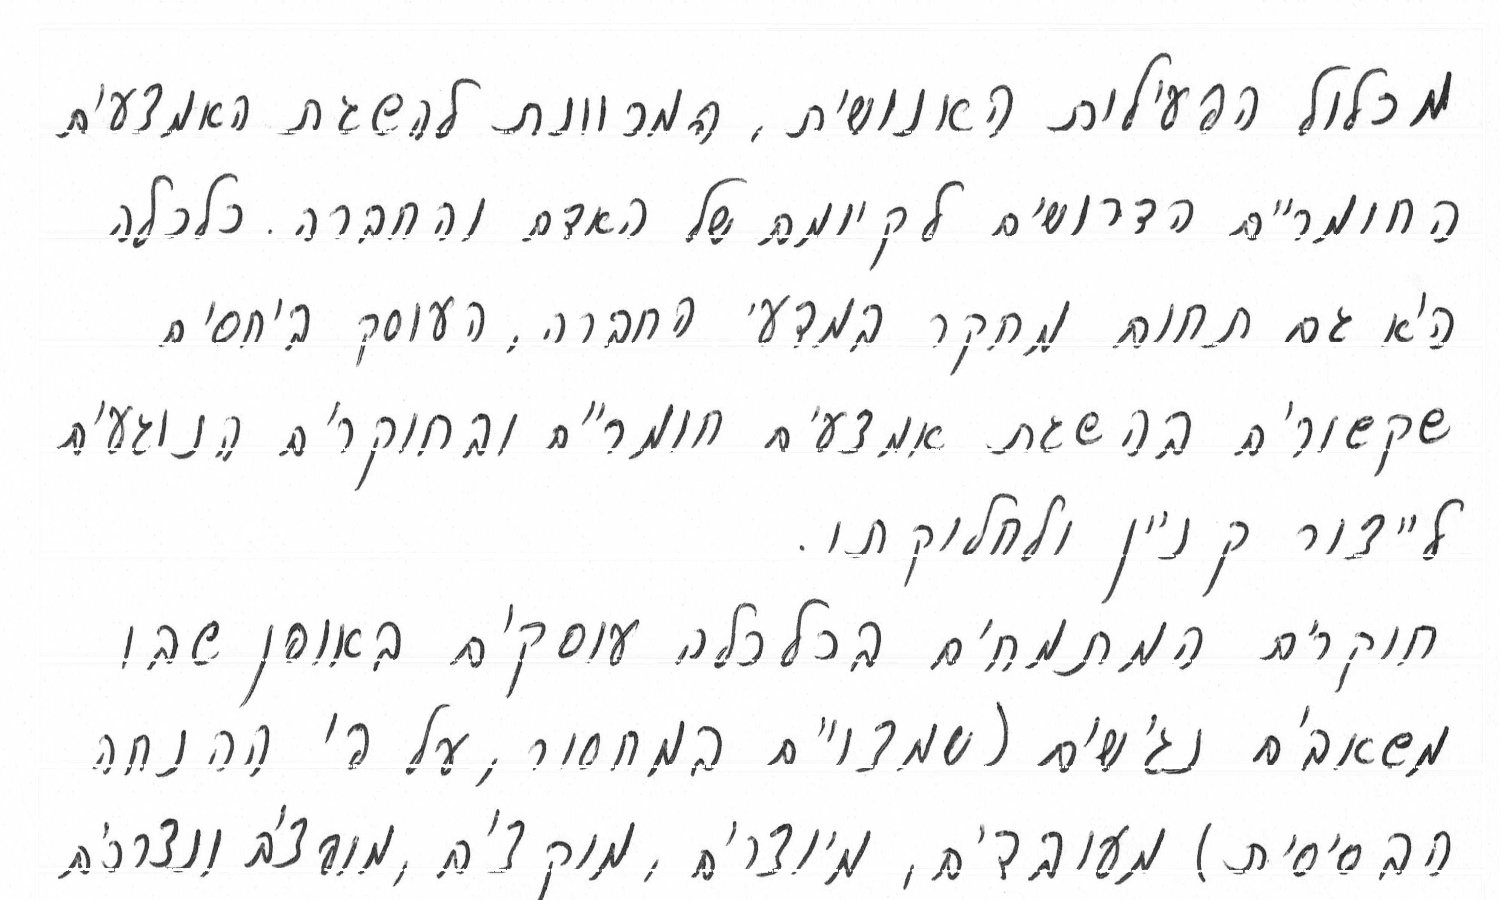 מכלול הפעילות האנושית, המכוונת להשגת האמצעים
החומריים הדרושים לקיומם של האדם והחברה. כלכלה
היא גם תחום מחקר במדעי החברה, העוסק ביחסים
שקשורים בהשגת אמצעים חומריים ובחוקרים הנוגעים
לייצור קניין ולחלוקתו.
חוקרים המתמחים בכלכלה עוסקים באופן שבו
משאבים נגישים (שמצויים במחסור, על פי ההנחה
הבסיסית) מעובדים, מיוצרים, מוקצים, מופצים ונצרכים